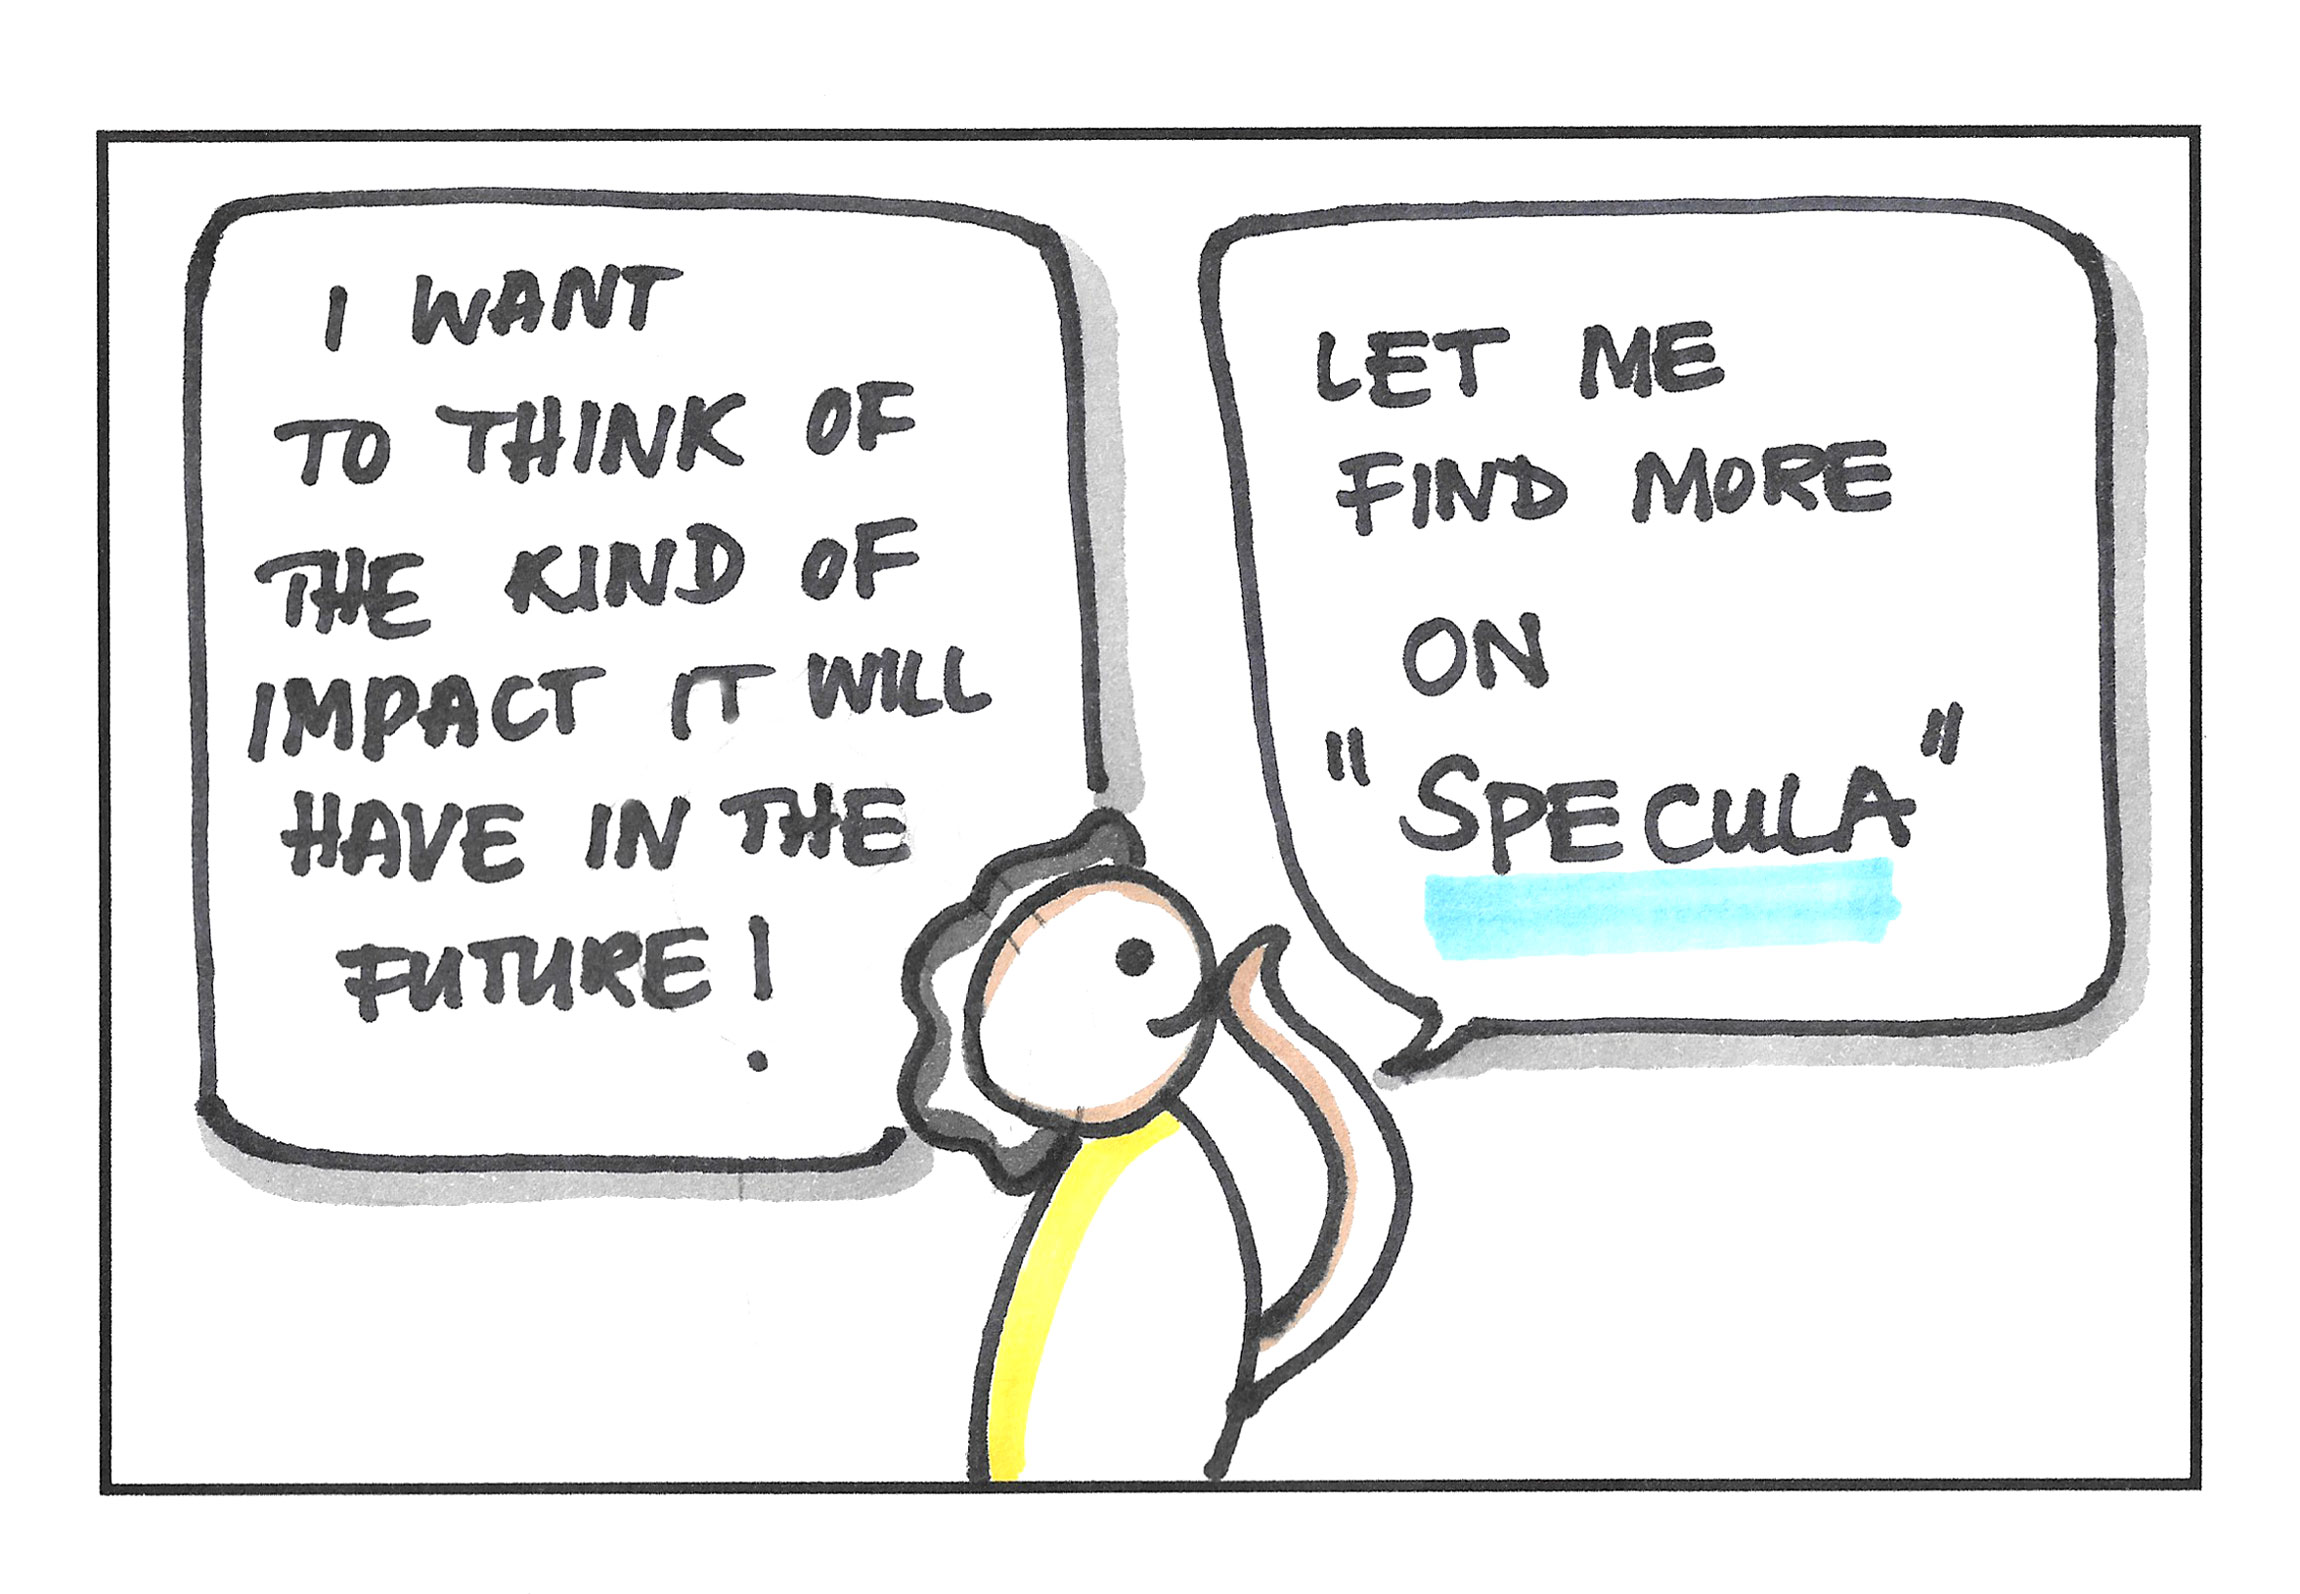 I WANT
TO THINK OF
THE KIND OF
IMPACT IT WILL
HAVE IN THE
FUTURE!
LET ME
FIND MORE
ON
"SPECULA"